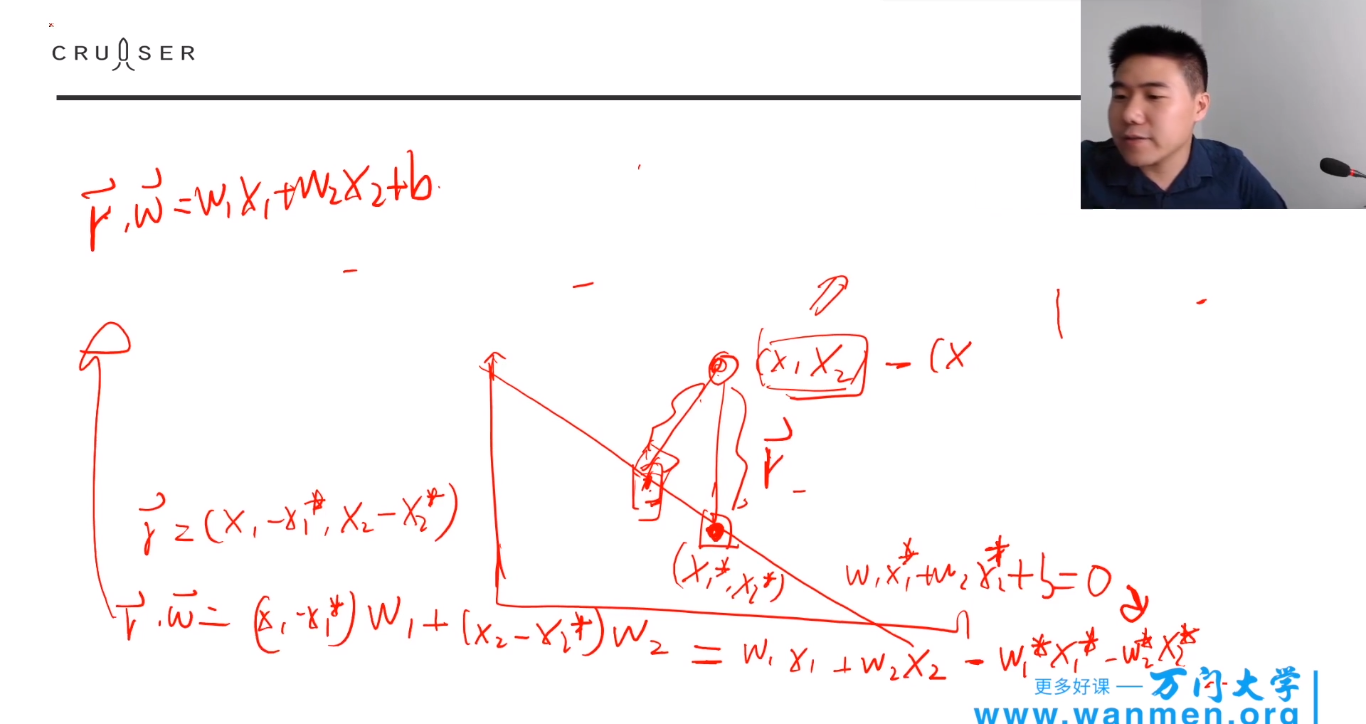 CRUISER
r⃗ · w⃗ = w₁x₁ + w₂x₂ + b
(x₁, x₂) - (x
r⃗
r⃗ = (x₁ - x₁*, x₂ - x₂*)
(x₁*, x₂*)
w₁x₁* + w₂x₂* + b = 0
r⃗ · w⃗ = (x₁ - x₁*) w₁ + (x₂ - x₂*) w₂ = w₁x₁ + w₂x₂ - w₁*x₁* - w₂*x₂*
更多好课 — 万门大学
www.wanmen.org